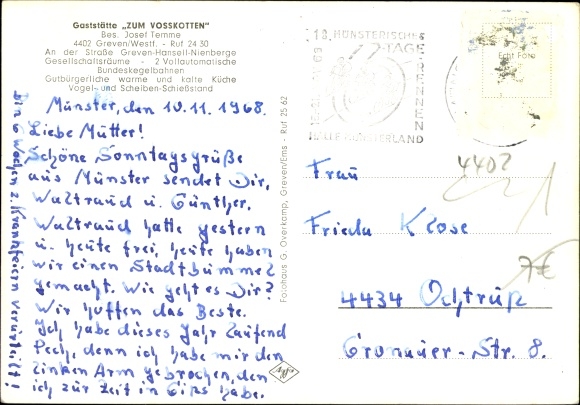 Gaststätte „ZUM VOSSKOTTEN"
Bes. Josef Temme
4402 Greven/Westf. - Ruf 24 30
An der Straße Greven-Hansell-Nienberge
Gesellschaftsräume - 2 Vollautomatische
Bundeskegelbahnen
Gutbürgerliche warme und kalte Küche
Vogel- und Scheiben-Schießstand
Münster, den 10.11.1968.
Liebe Mutter!
Schöne Sonntagsgrüße
aus Münster sendet Dir,
Waltraud u. Günther.
Waltraud hatte gestern
u. heute frei, heute haben
wir einen Stadtbummel
gemacht. Wie geht es Dir?
Wir hoffen das Beste.
Ich habe dieses Jahr laufend
Pech, denn ich habe mir den
linken Arm gebrochen, den
ich zur Zeit in Gips habe.
Bin 6 Wochen z. Krankfeiern verurteilt!
Fotohaus G. Overkamp, Greven/Ems - Ruf 25 62
18. MÜNSTERISCHES
6-TAGE
RENNEN
HALLE MÜNSTERLAND
Echt Foto
Frau
4402
Frieda Klose
7€
4434 Ochtrup
Gronauer-Str. 8.